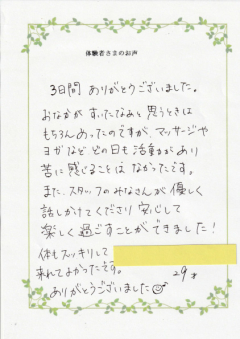 体験者さまのお声
3日間 ありがとうございました。
おなかがすいたなあと思うときは
もちろんあったのですが、マッサージや
ヨガなど どの日も活動があり
苦に感じることは なかったです。
また、スタッフのみなさんが 優しく
話しかけてくださり 安心して
楽しく過ごすことができました！
体もスッキリして
来れてよかったです。
29才
ありがとうございました